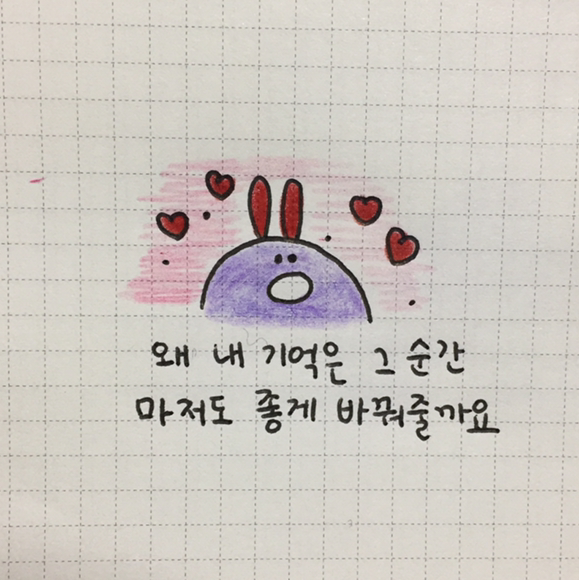 왜 내 기억은 그 순간
마저도 좋게 바꿔줄까요